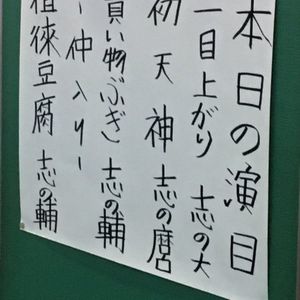 本日の演目
一目上がり 志の大
初天神 志の麿
買い物ぶぎ 志の輔
ー仲入りー
徂徠豆腐 志の輔